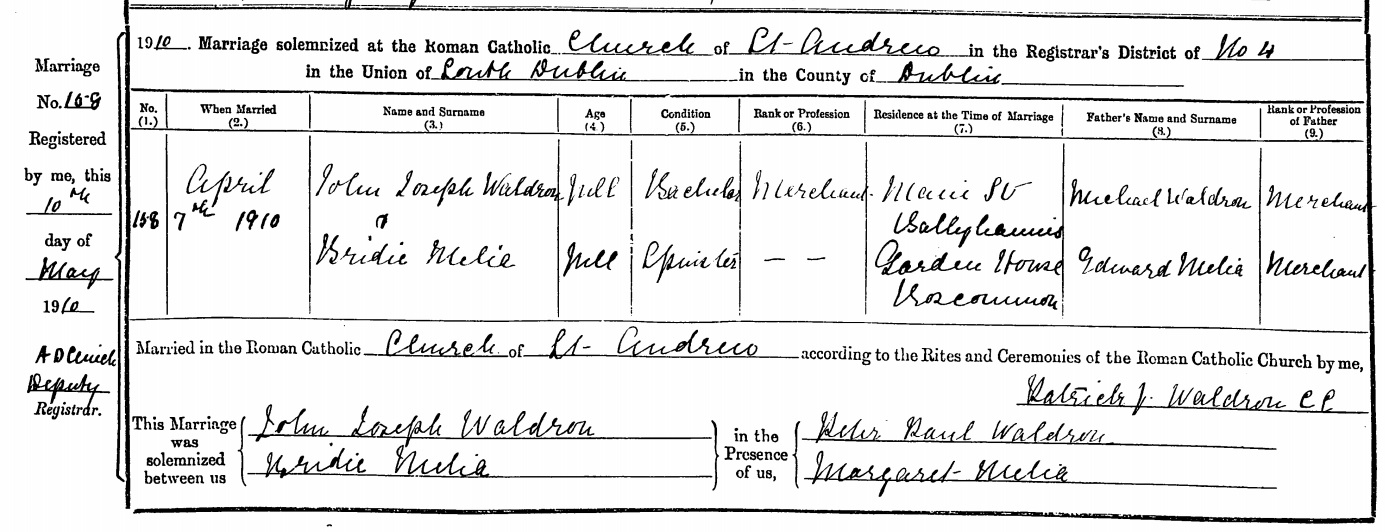 1910. Marriage solemnized at the Roman Catholic Church of St. Andrew in the Registrar's District of No 4
in the Union of South Dublin in the County of Dublin
Marriage
No. 158
Registered
by me, this
10th
day of
May
1910
Deputy
Registrar.
No. (1.) When Married (2.) Name and Surname (3.) Age (4.) Condition (5.) Rank or Profession (6.) Residence at the Time of Marriage (7.) Father's Name and Surname (8.) Rank or Profession of Father (9.)
April John Joseph Waldron Full Bachelor Merchant Main St Michael Waldron Merchant
158 7th 1910 Ballyhaunis
Bridie Melia Full Spinster — — Garden House Edward Melia Merchant
Roscommon
Married in the Roman Catholic Church of St. Andrew according to the Rites and Ceremonies of the Roman Catholic Church by me,
Patrick J. Waldron CC
This Marriage was solemnized between us
John Joseph Waldron
Bridie Melia
in the Presence of us,
Peter Paul Waldron
Margaret Melia